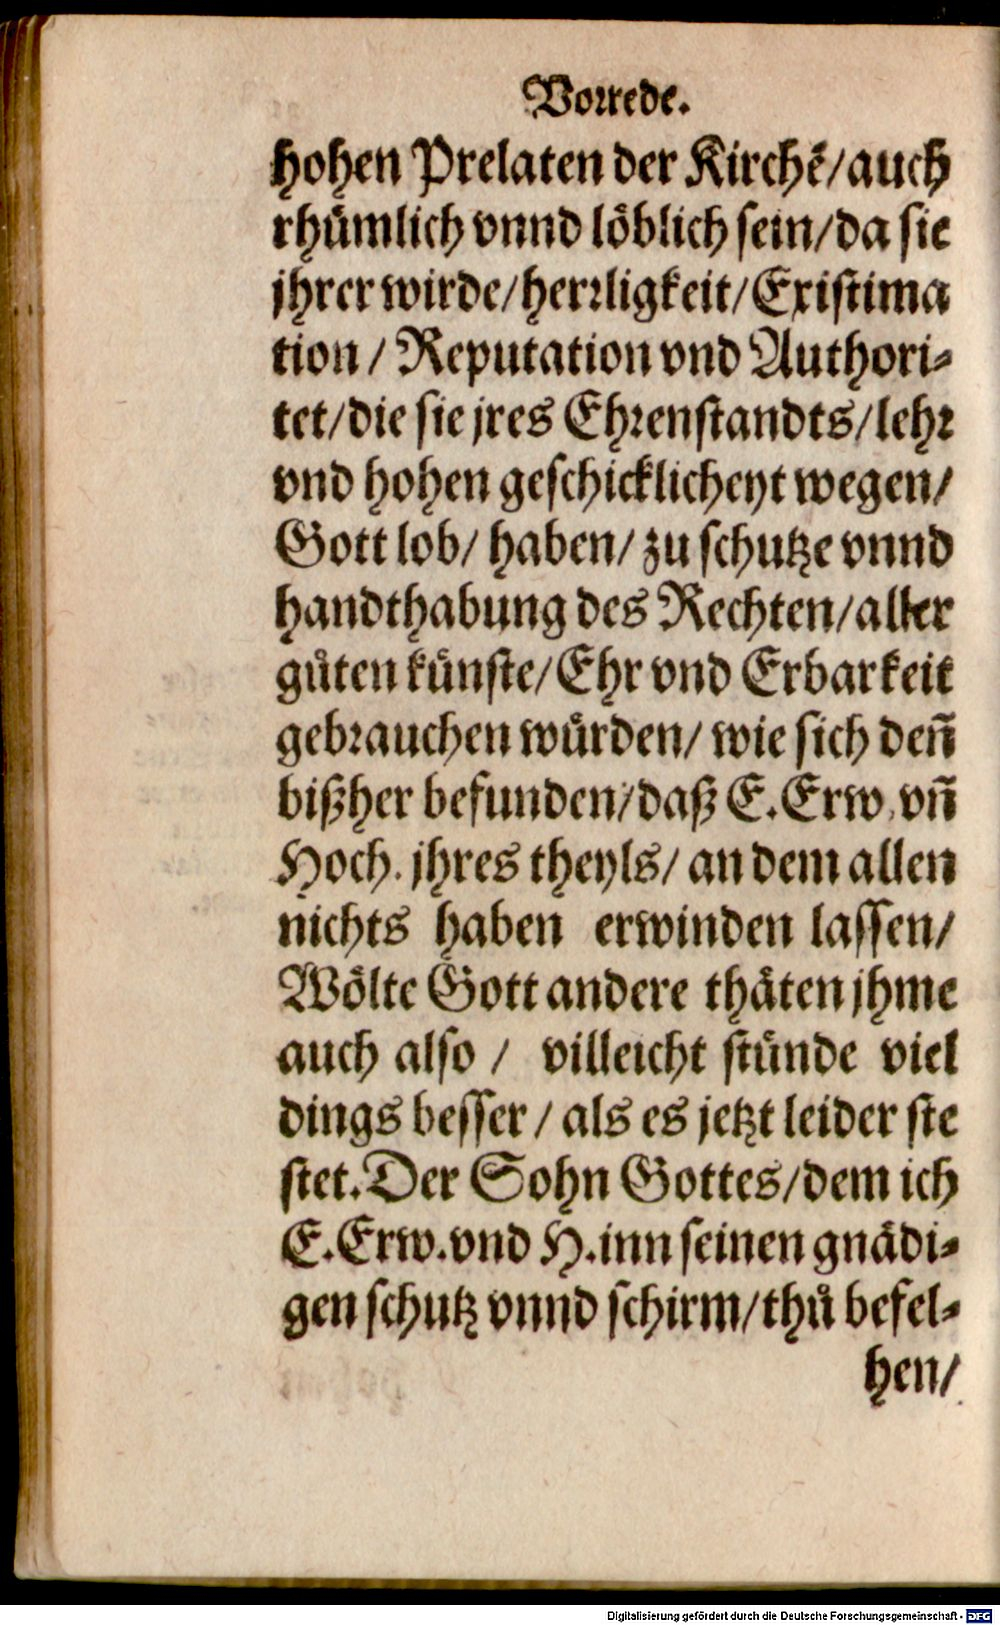 Vorrede.
hohen Prelaten der Kirchẽ/auch
rhuͤmlich vnnd loͤblich sein/da sie
jhrer wirde/herrligkeit/Existima
tion / Reputation vnd Authori-
tet/die sie jres Ehrenstandts/lehr
vnd hohen geschicklicheyt wegen/
Gott lob/ haben/ zu schutze vnnd
handthabung des Rechten/aller
guͤten kuͤnste/Ehr vnd Erbarkeit
gebrauchen wuͤrden/ wie sich deñ
bißher befunden/daß E.Erw.vñ
Hoch. jhres theyls/ an dem allen
nichts haben erwinden lassen/
Woͤlte Gott andere thaͤten jhme
auch also / villeicht stuͤnde viel
dings besser / als es jetzt leider ste
stet. Der Sohn Gottes/dem ich
E.Erw.vnd H.inn seinen gnaͤdi-
gen schutz vnnd schirm/thuͤ befel-
hen/
Digitalisierung gefördert durch die Deutsche Forschungsgemeinschaft - DFG